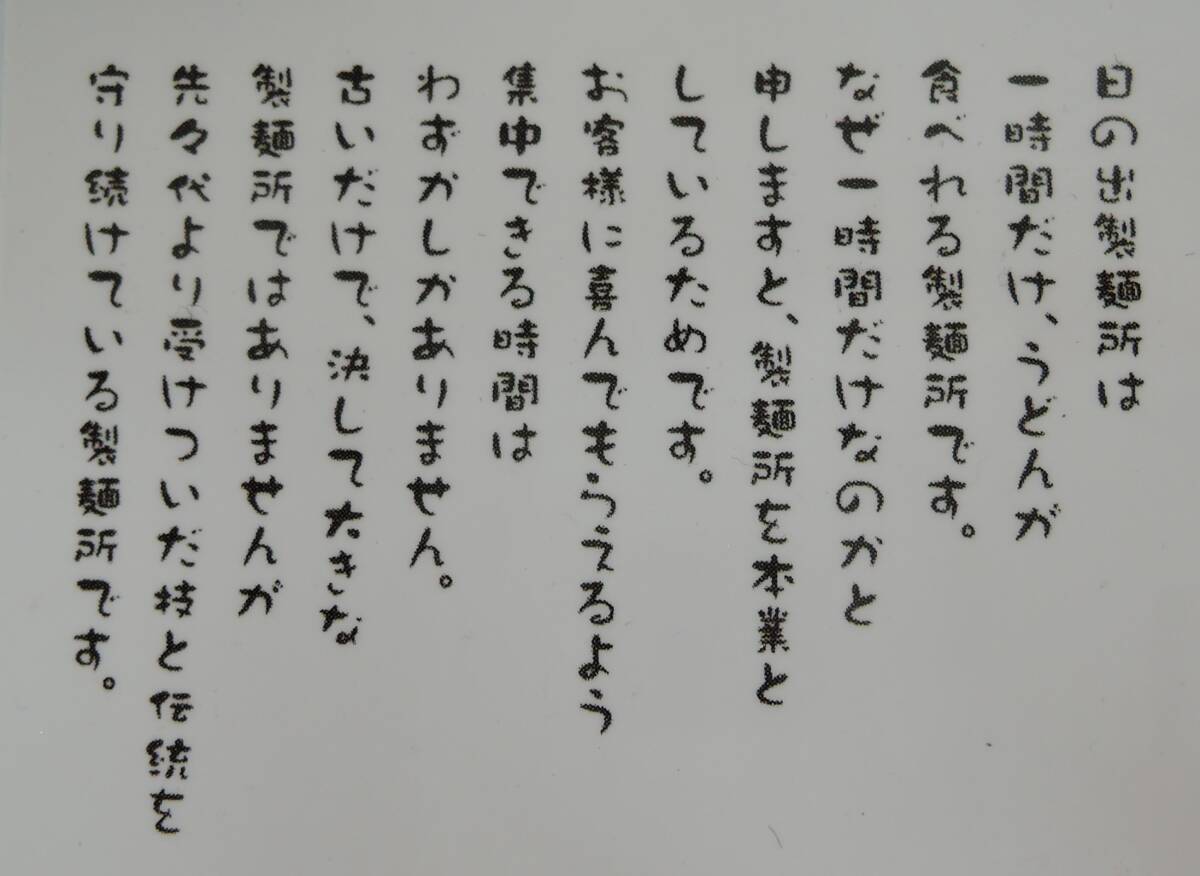 日の出製麺所は
一時間だけ、うどんが
食べれる製麺所です。
なぜ一時間だけなのかと
申しますと、製麺所を本業と
しているためです。
お客様に喜んでもらえるよう
集中できる時間は
わずかしかありません。
古いだけで、決して大きな
製麺所ではありませんが
先々代より受けついだ技と伝統を
守り続けている製麺所です。